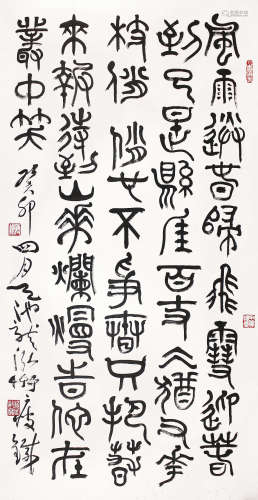 風雨送春歸飛雪迎春
到已是縣崖百丈仌猶又花
枝俏俏也不爭春只把春
來報待到山花爛漫旹他在
叢中笑
癸卯四月 瘦鐵